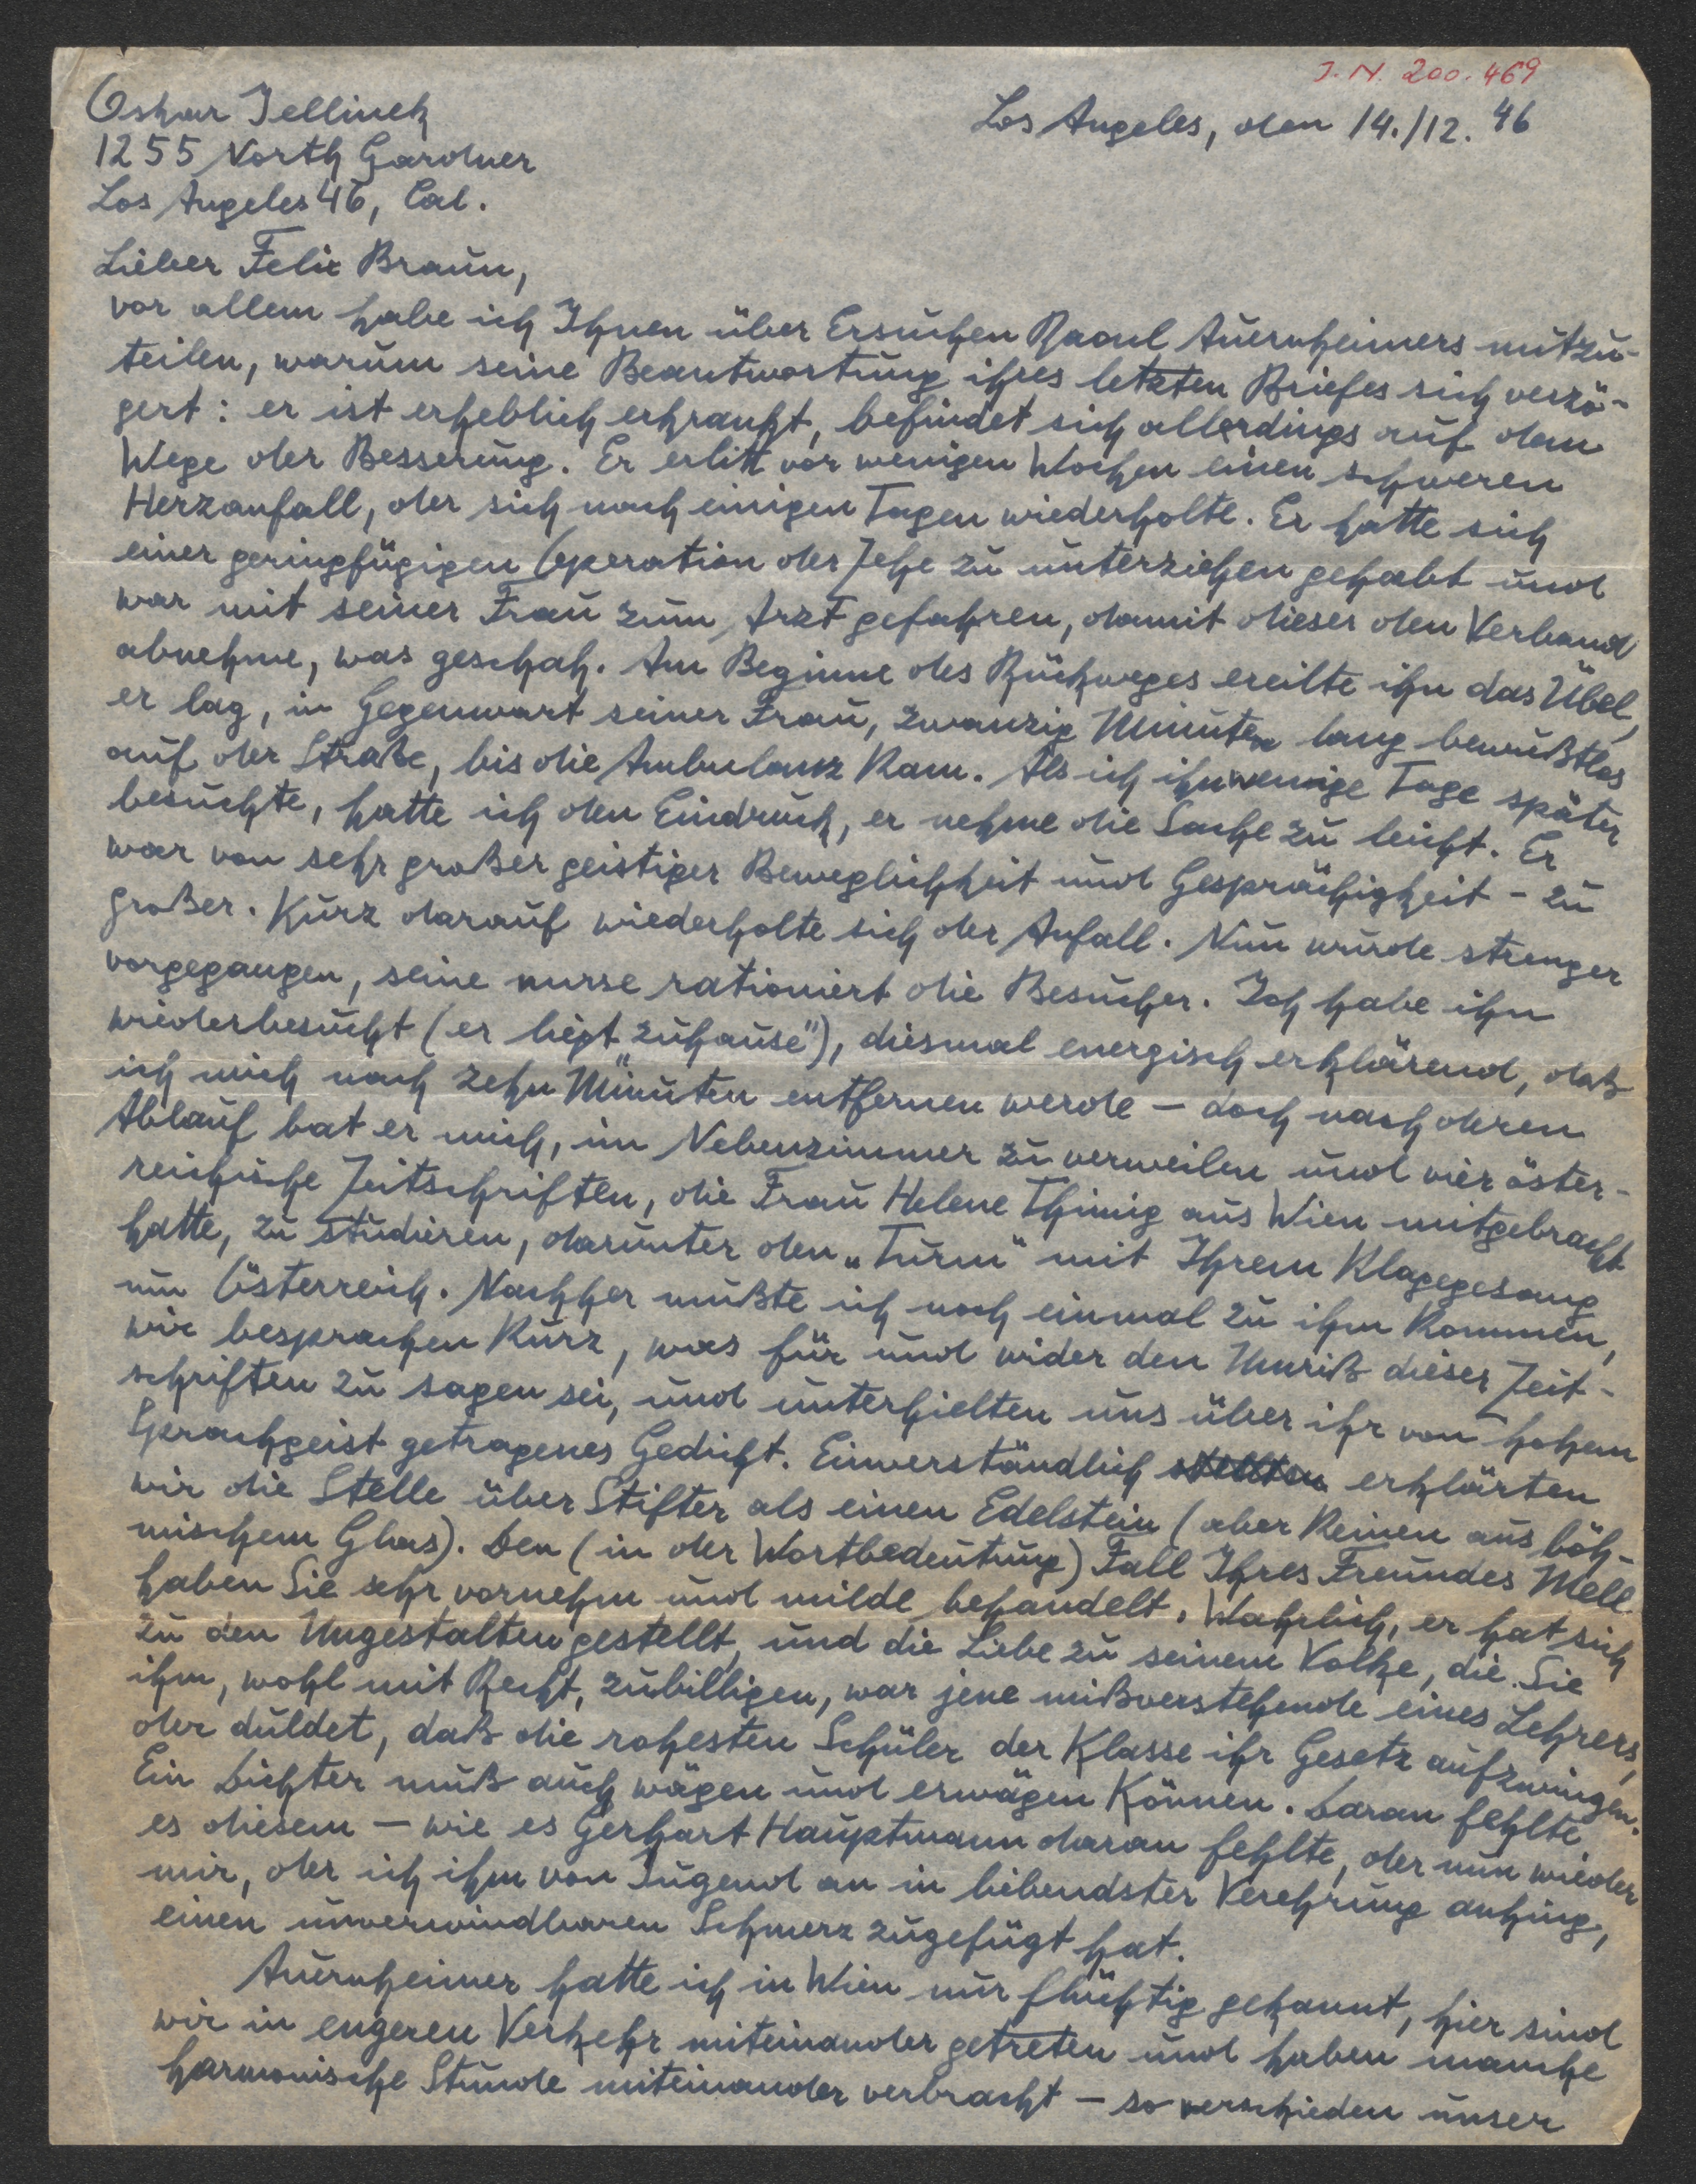 J. N. 200.469
Oskar Jellinek
1255 North Gardner
Los Angeles 46, Cal.
Los Angeles, den 14./12. 46
Lieber Felix Braun,
vor allem habe ich Ihnen über Ersuchen Raoul Auernheimers mitzu-
teilen, warum seine Beantwortung ihres letzten Briefes sich verzö-
gert: er ist erheblich erkrankt, befindet sich allerdings auf dem
Wege der Besserung. Er erlitt vor wenigen Wochen einen schweren
Herzanfall, der sich nach einigen Tagen wiederholte. Er hatte sich
einer geringfügigen Operation der Zehe zu unterziehen gehabt und
war mit seiner Frau zum Arzt gefahren, damit dieser den Verband
abnehme, was geschah. Am Beginne des Rückweges ereilte ihn das Übel,
er lag, in Gegenwart seiner Frau, zwanzig Minuten lang bewußtlos
auf der Straße, bis die Ambulanz kam. Als ich ihn wenige Tage später
besuchte, hatte ich den Eindruck, er nehme die Sache zu leicht. Er
war von sehr großer geistiger Beweglichkeit und Gesprächigkeit - zu
großer. Kurz darauf wiederholte sich der Anfall. Nun wurde strenger
vorgegangen, seine nurse rationiert die Besucher. Ich habe ihn
wiederbesucht (er liegt „zuhause"), diesmal energisch erklärend, daß
ich mich nach zehn Minuten entfernen werde - doch nach deren
Ablauf bat er mich, im Nebenzimmer zu verweilen und vier öster-
reichische Zeitschriften, die Frau Helene Thimig aus Wien mitgebracht
hatte, zu studieren, darunter den „Turm" mit Ihrem Klagegesang
um Österreich. Nachher mußte ich noch einmal zu ihm kommen,
wir besprachen kurz, was für und wider den Umriß dieser Zeit-
schriften zu sagen sei, und unterhielten uns über ihr von hohem
Sprachgeist getragenes Gedicht. Einverständlich erklärten
wir die Stelle über Stifter als einen Edelstein (aber keinen aus böh-
mischem Glas). Den (in der Wortbedeutung) Fall Ihres Freundes Mell
haben Sie sehr vornehm und milde behandelt. Wahrlich, er hat sich
zu den Ungestalten gestellt, und die Liebe zu seinem Volke, die Sie
ihm, wohl mit Recht, zubilligen, war jene mißverstehende eines Lehrers,
der duldet, daß die rohesten Schüler der Klasse ihr Gesetz aufzwingen.
Ein Dichter muß auch wägen und erwägen können. Daran fehlte
es diesem - wie es Gerhart Hauptmann daran fehlte, der nun wieder
mir, der ich ihm von Jugend an in liebendster Verehrung anhing,
einen unverwindbaren Schmerz zugefügt hat.
Auernheimer hatte ich in Wien nur flüchtig gekannt, hier sind
wir in engeren Verkehr miteinander getreten und haben manche
harmonische Stunde miteinander verbracht - so verschieden unser